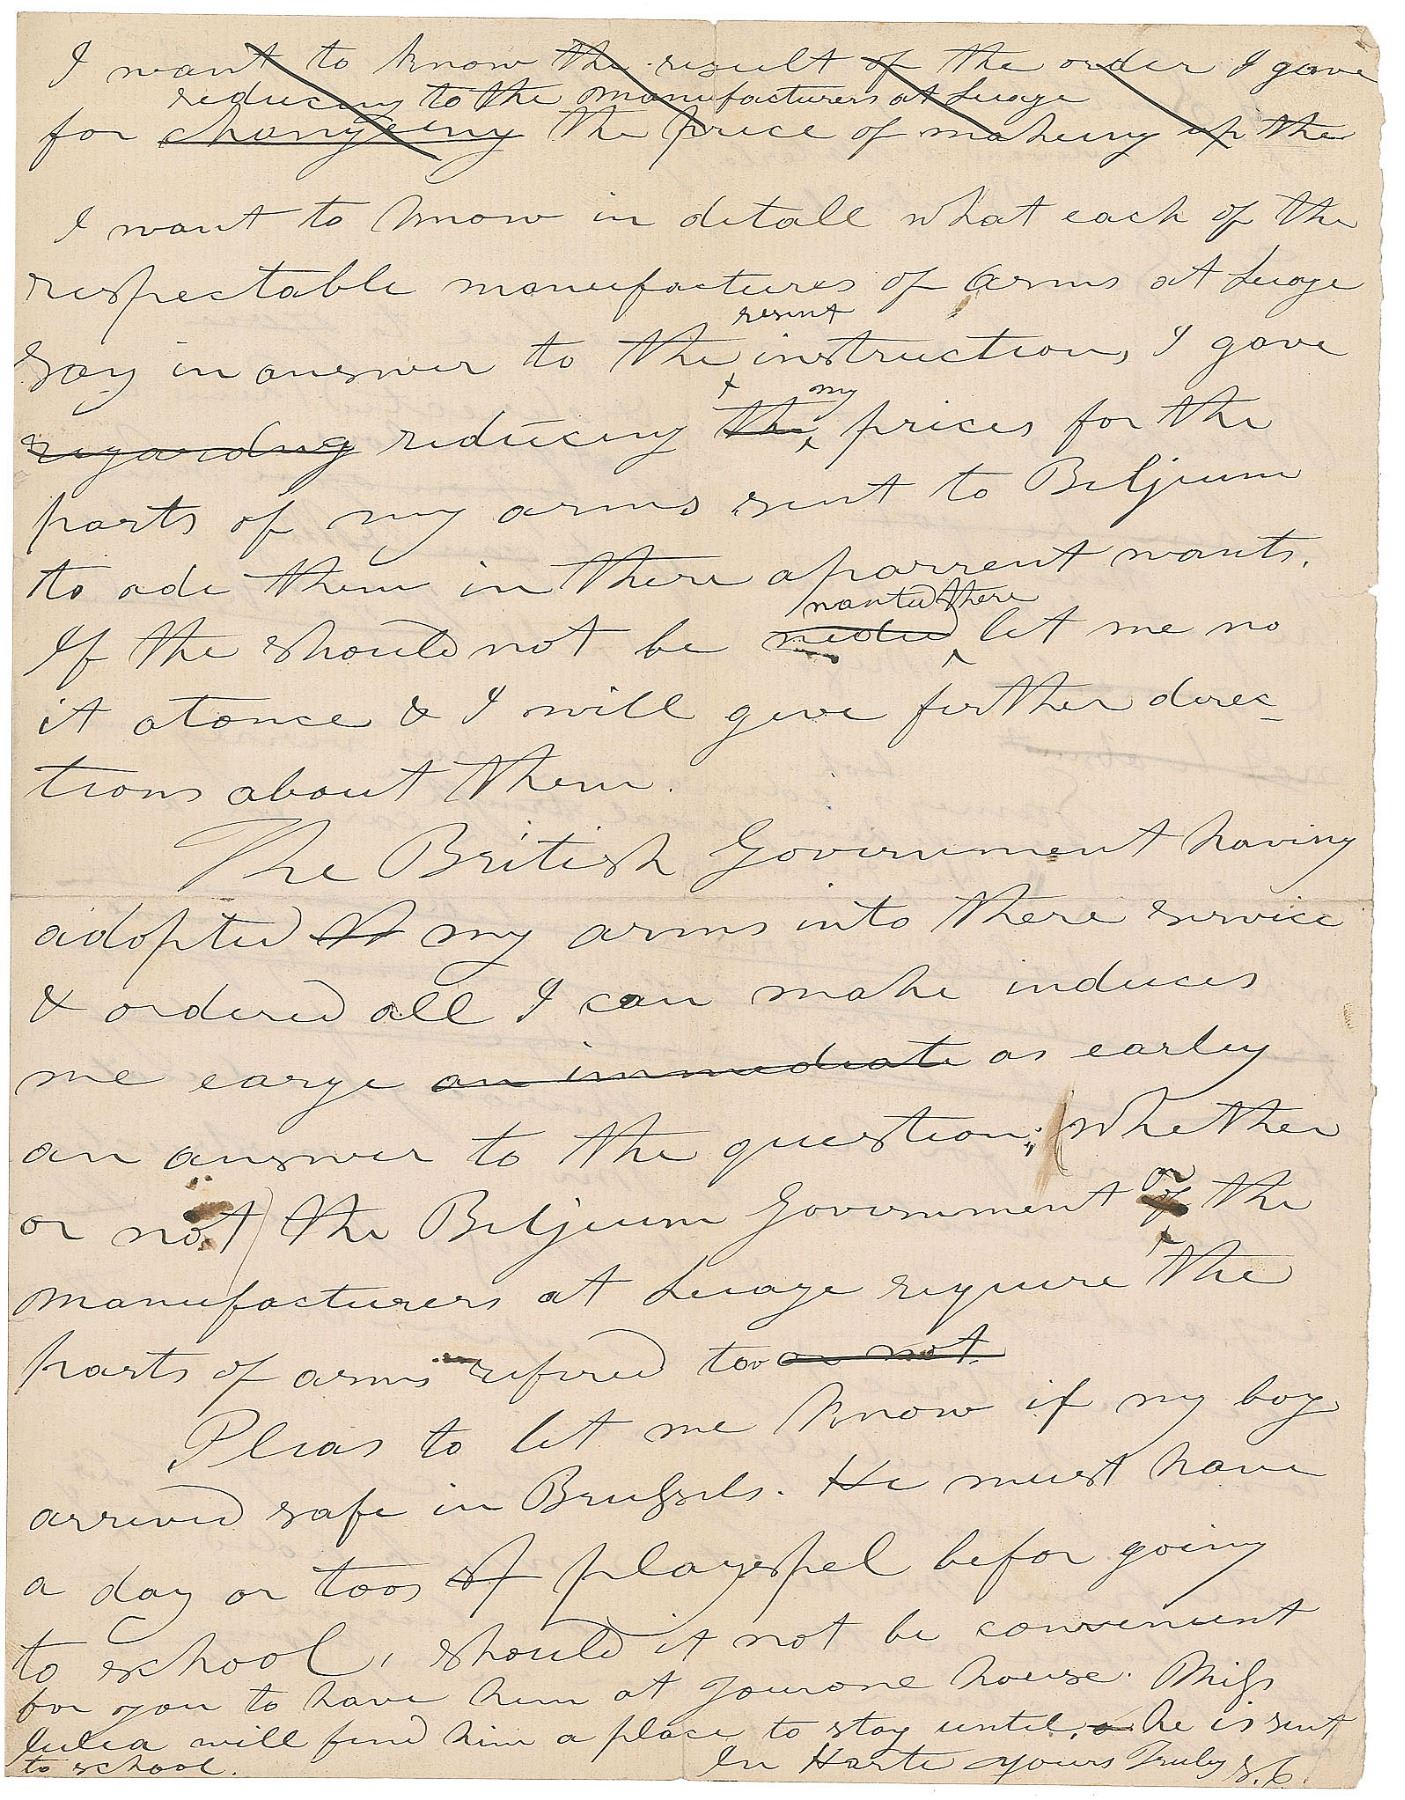 I want to know the result of the order I gave
reducing to the manufacturers at Luage
for changeing the price of makeing up the
I want to know in detall what each of the
respectable manufactures of arms at Luage
resint
say in answer to the instructions I gave
my
regarding reducing the prices for the
parts of my arms sent to Beljium
to ade them in there aparrent wants.
wanted there
If the should not be neded let me no
it atonce & I will give firther direc-
tions about them.
The British Government having
adopted my arms into there service
& ordered all I can make induces
me earge an immediate as earley
an answer to the question; (whether
or not) the Beljium Government or the
manufacturers at Luage require the
parts of arms refired too or not.
Pleas to let me know if my boy
arrived safe in Brussels. He must have
a day or toos of playspel befor going
to school, should it not be convenient
for you to have him at yourone house. Miss
Julea will find him a place to stay until he is sent
to school.
In Harte yours Truly S. C.